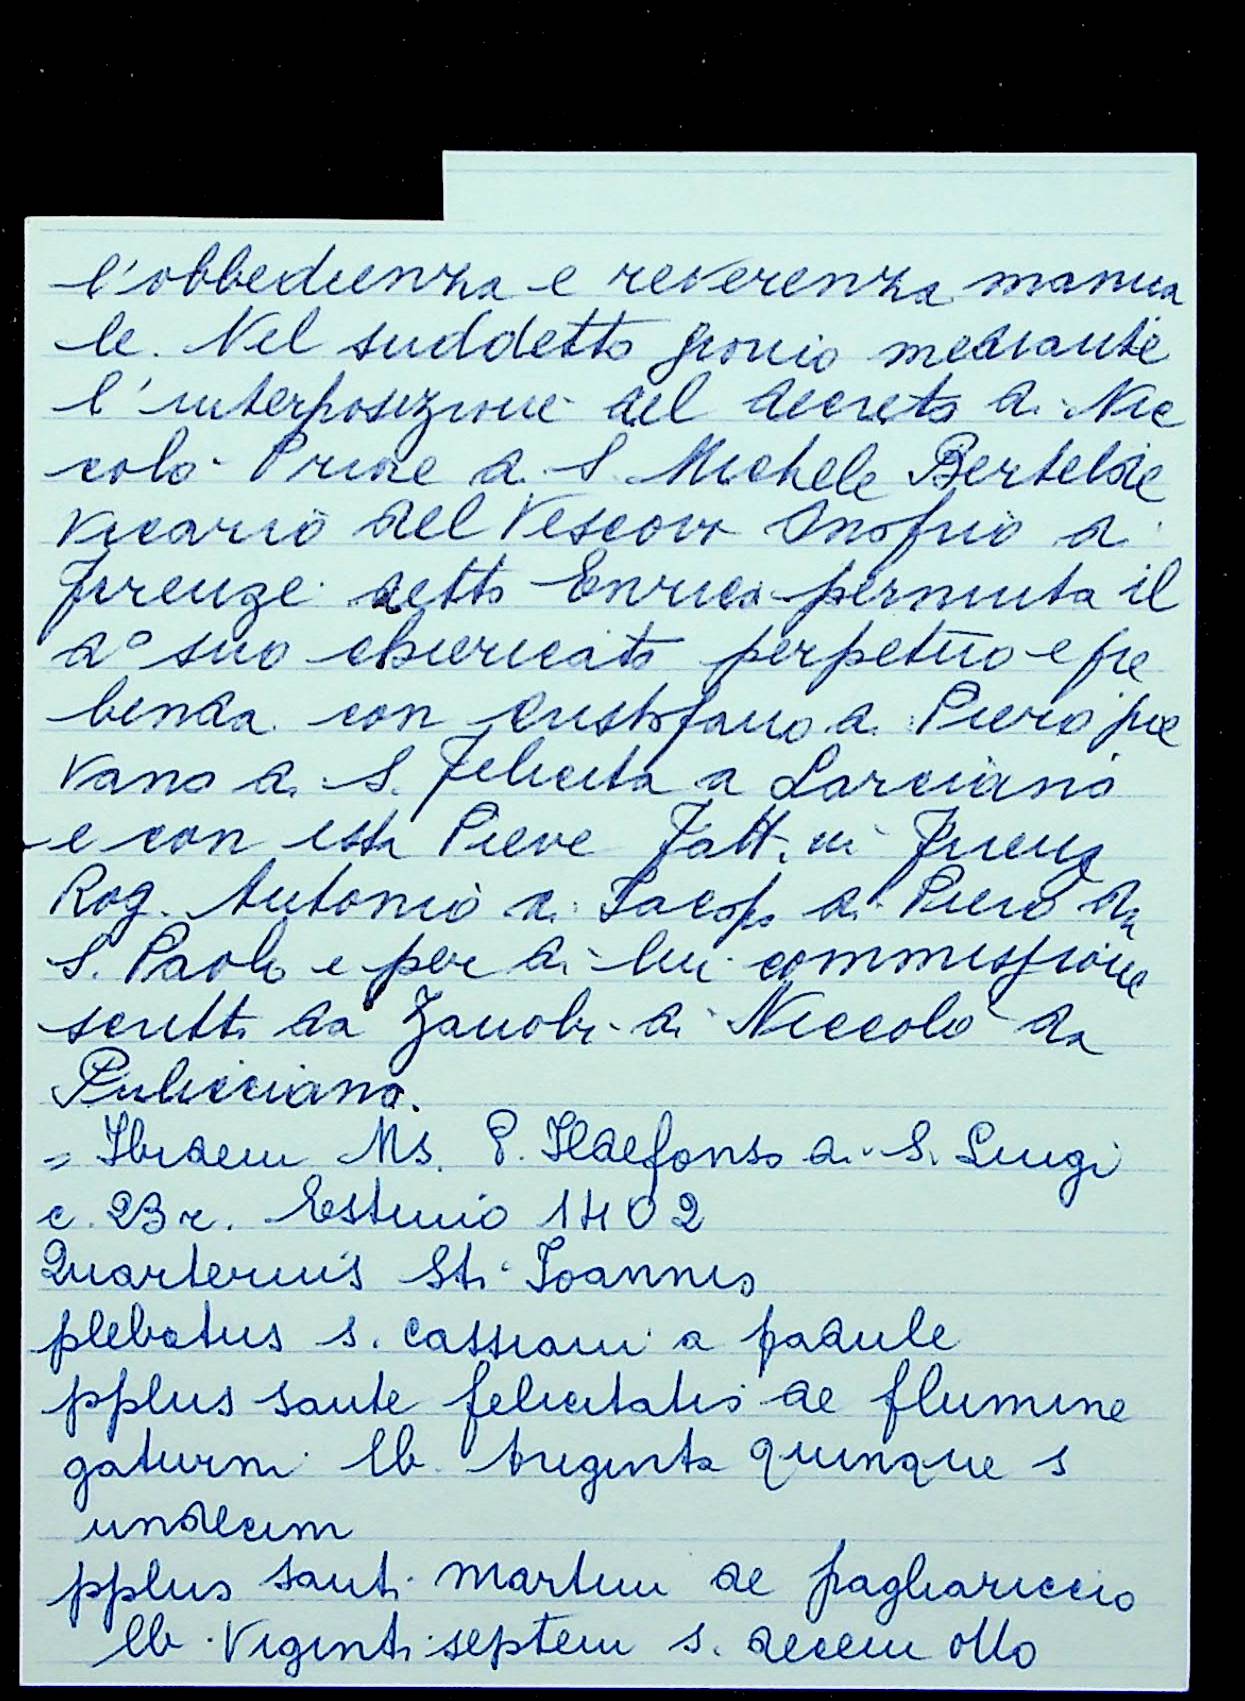 l'obbedienza e reverenza manua
le. Nel suddetto giorno mediante
l'interposizione del decreto di Nic
colò Priore di S. Michele Berteldi
Vicario del Vescovo Onofrio di
Firenze detto Enrico permuta il
do suo chiericato perpetuo e pre
benda con Cristofano di Piero pie
vano di S. Felicita a Larciano
e con essa Pieve Fatt. in Firenz
Rog. Antonio di Iacopo di Piero da
S. Paolo e per di lui commissione
scritto da Zanobi di Niccolò da
Pulicciano.
= Ibidem Ms. P. Ildefonso di S. Luigi
c. 23 r. Estimo 1402
Quarternis Sti Ioannis
plebatus s. cassiani a padule
pplus sante felicitatis de flumine
gaturni lb. triginta quinque s
undecim
pplus santi martini de pagliariccio
lb. viginti septem s. decem otto